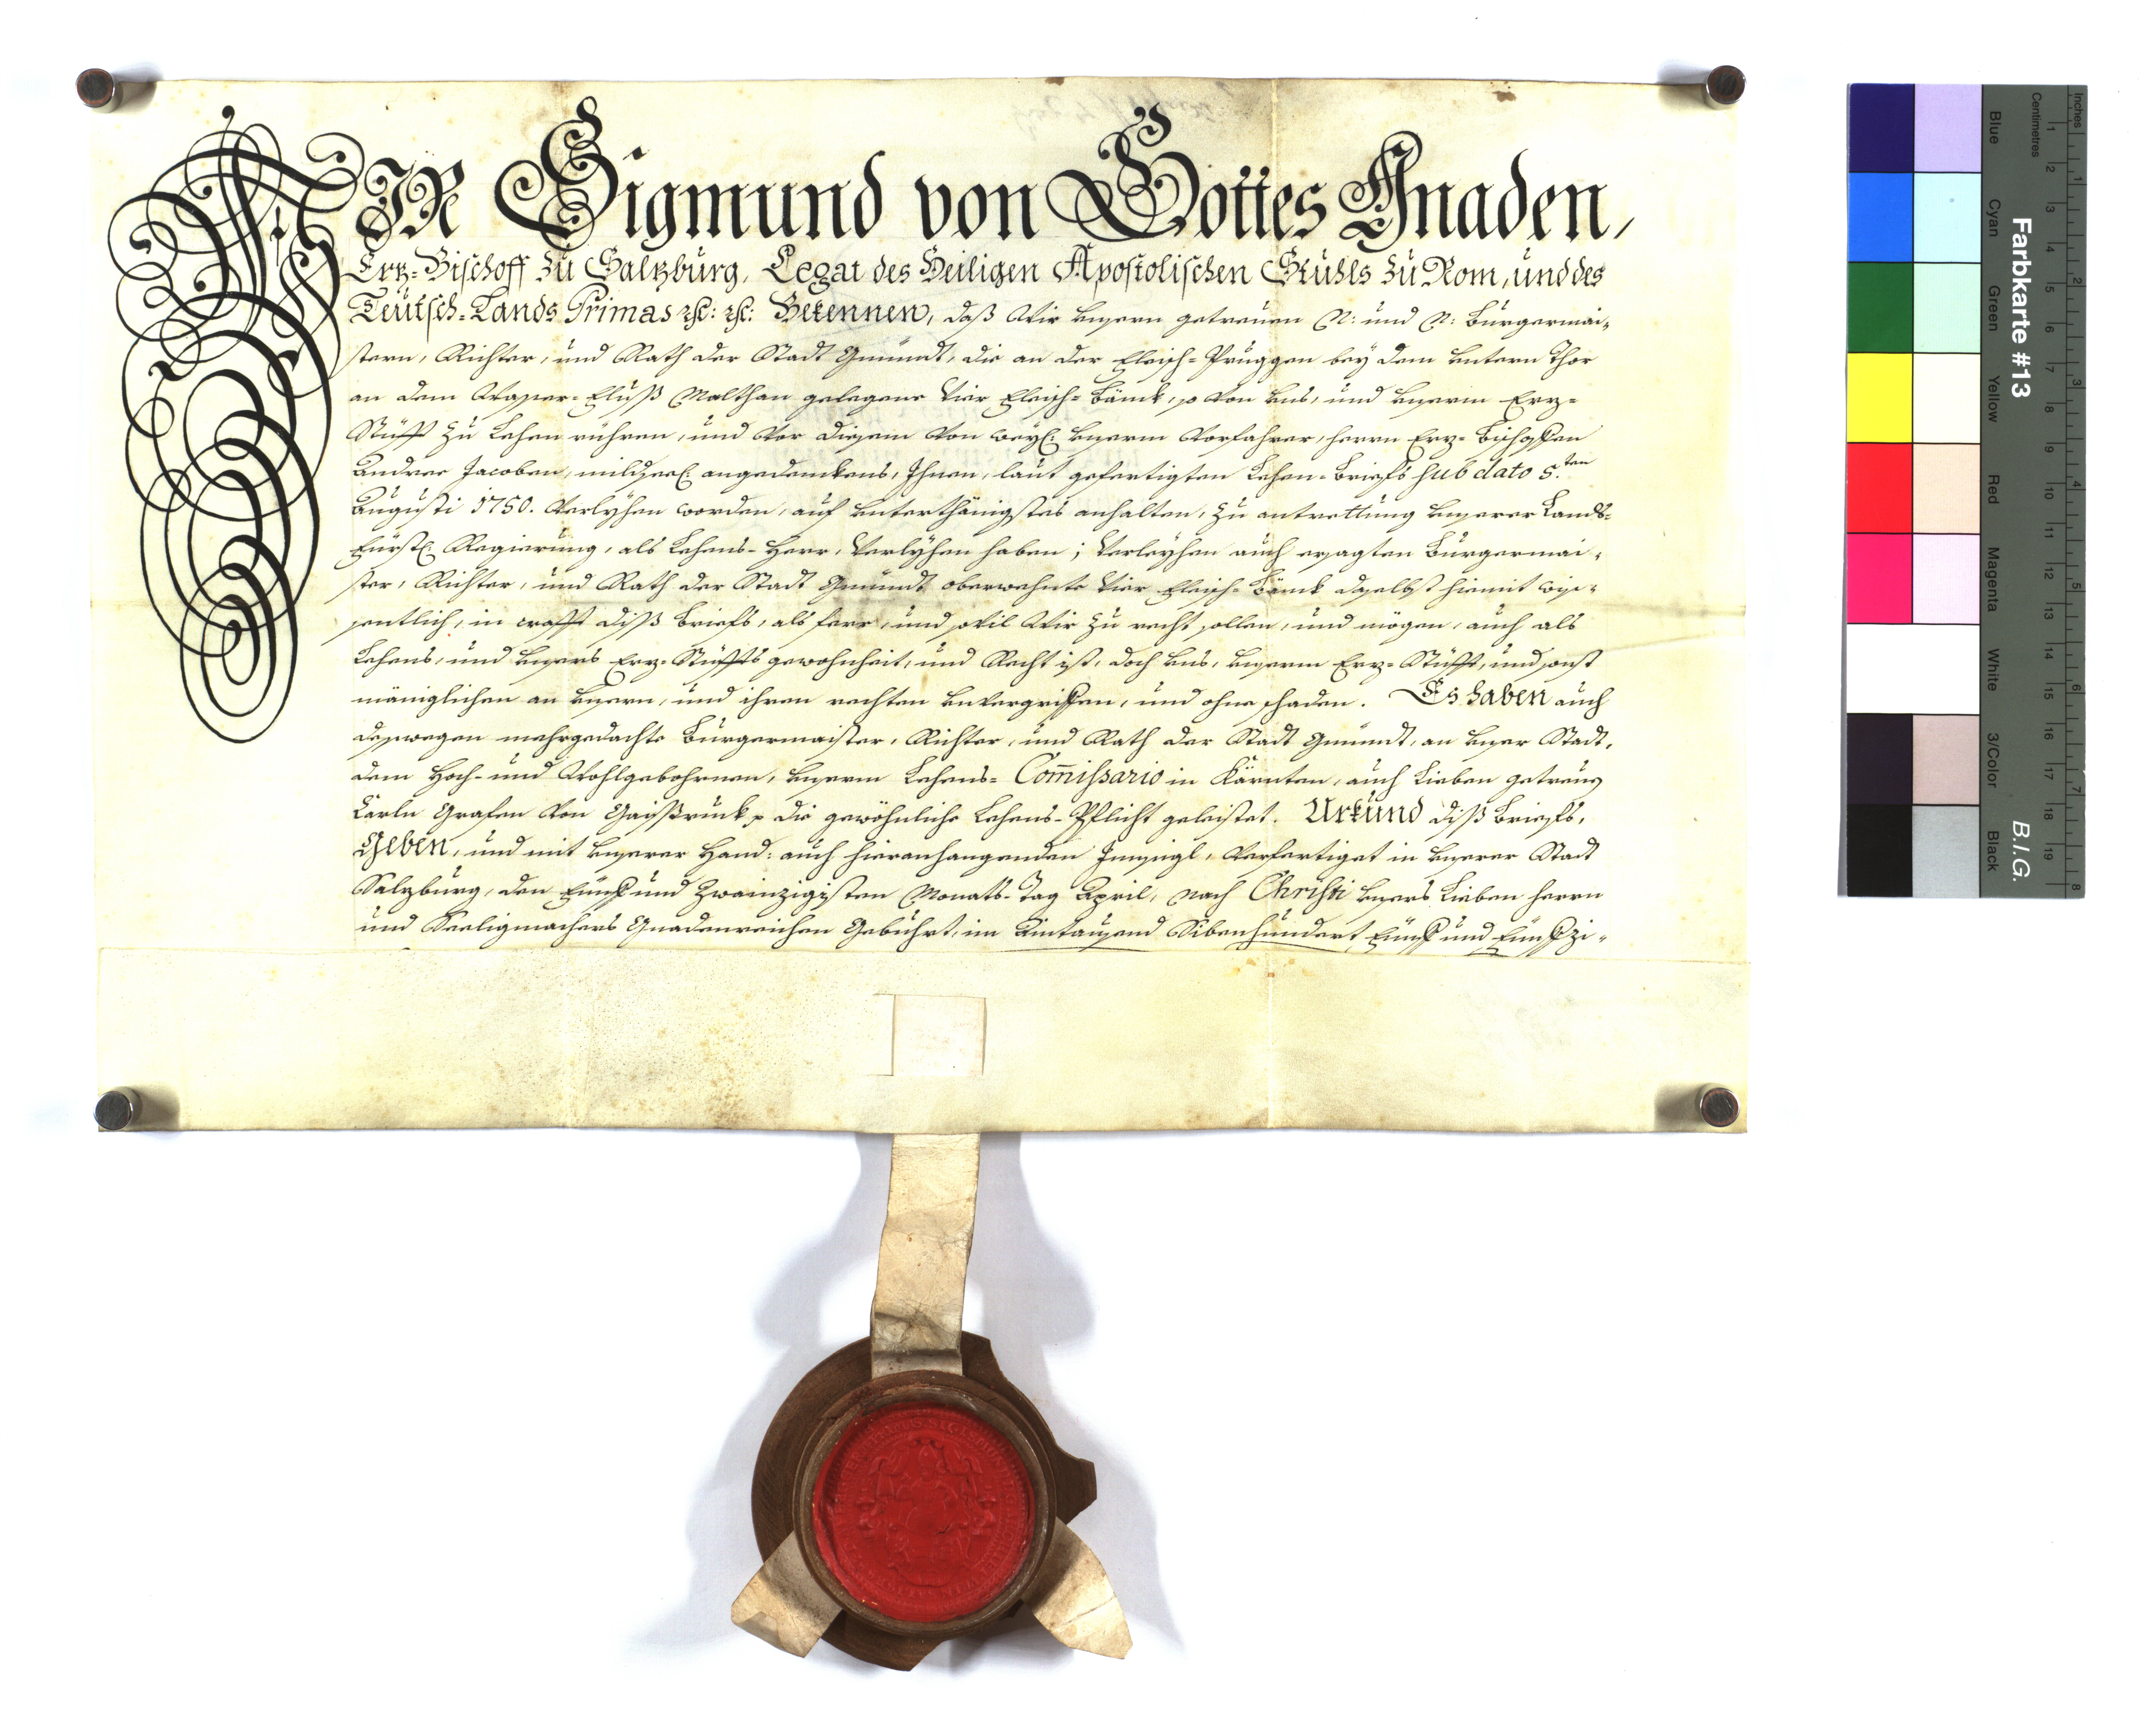 WIR Sigmund von Gottes Gnaden,
Ertz-Bischoff zu Saltzburg, Legat des Heiligen Apostolischen Stuhls zu Rom, und des
Teutsch-Lands Primas etc: etc: Bekennen, daß Wir unsern getreuen N: und N: Burgermai-
stern, Richter, und Rath der Stadt Gmündt, die an der Fleisch-Pruggen bey dem untern Thor
an dem Wasser-Fluß Malthan gelegene vier Fleisch-Bänck, so von uns, und unserm Erz-
Stüfft zu Lehen rühren, und vor diesem von weyl: unserm Vorfahrer, herrn Erz-Bischoffen
Andree Jacoben, mildseel: angedenckens, Ihnen, laut gefertigten Lehen-Briefs sub dato 5.ten
Augusti 1750. verlyhen worden, auf unterthänigstes anhalten, zu antrettung unserer Lands-
Fürstl: Regierung, als Lehens-Herr, verlyhen haben; verleyhen auch ersagten Burgermai-
ster, Richter, und Rath der Stadt Gmündt oberwehnte vier Fleisch-Bänck daselbst hiemit wis-
sentlich, in crafft diß Briefs, als ferr, und sovil Wir zu recht sollen, und mögen, auch als
Lehens, und unsers Erz-Stüffts gewohnheit, und Recht ist, doch uns, unserm Erz-Stüfft, und sonst
mäniglichen an unsern, und ihren rechten unvergriffen, und ohne schaden. Es haben auch
desswegen mehrgedachte Burgermaister, Richter, und Rath der Stadt Gmündt, an unser Statt,
dem Hoch- und Wohlgebohrnen, unserm Lehens-Comissario in Kärnten, auch Lieben getreuen
Carln Grafen von Gaissruck, die gewöhnliche Lehens-Pflicht geleistet. Urkund diß Briefs,
Geben, und mit unserer Hand: auch hieranhangenden Innsigl, verfertiget in unserer Stadt
Salzburg, den Fünf und zwainzigisten Monats-Tag April, nach Christi unsers Lieben herrn
und Seeligmachers Gnadenreichen Gebuhrt, im Aintausend Sibenhundert Fünf und Fünfzi-
Farbkarte #13
B.I.G.
Inches
Centimetres
Blue
Cyan
Green
Yellow
Red
Magenta
White
3/Color
Black
1 2 3 4 5 6 7 8 9 10 11 12 13 14 15 16 17 18 19
1 2 3 4 5 6 7 8